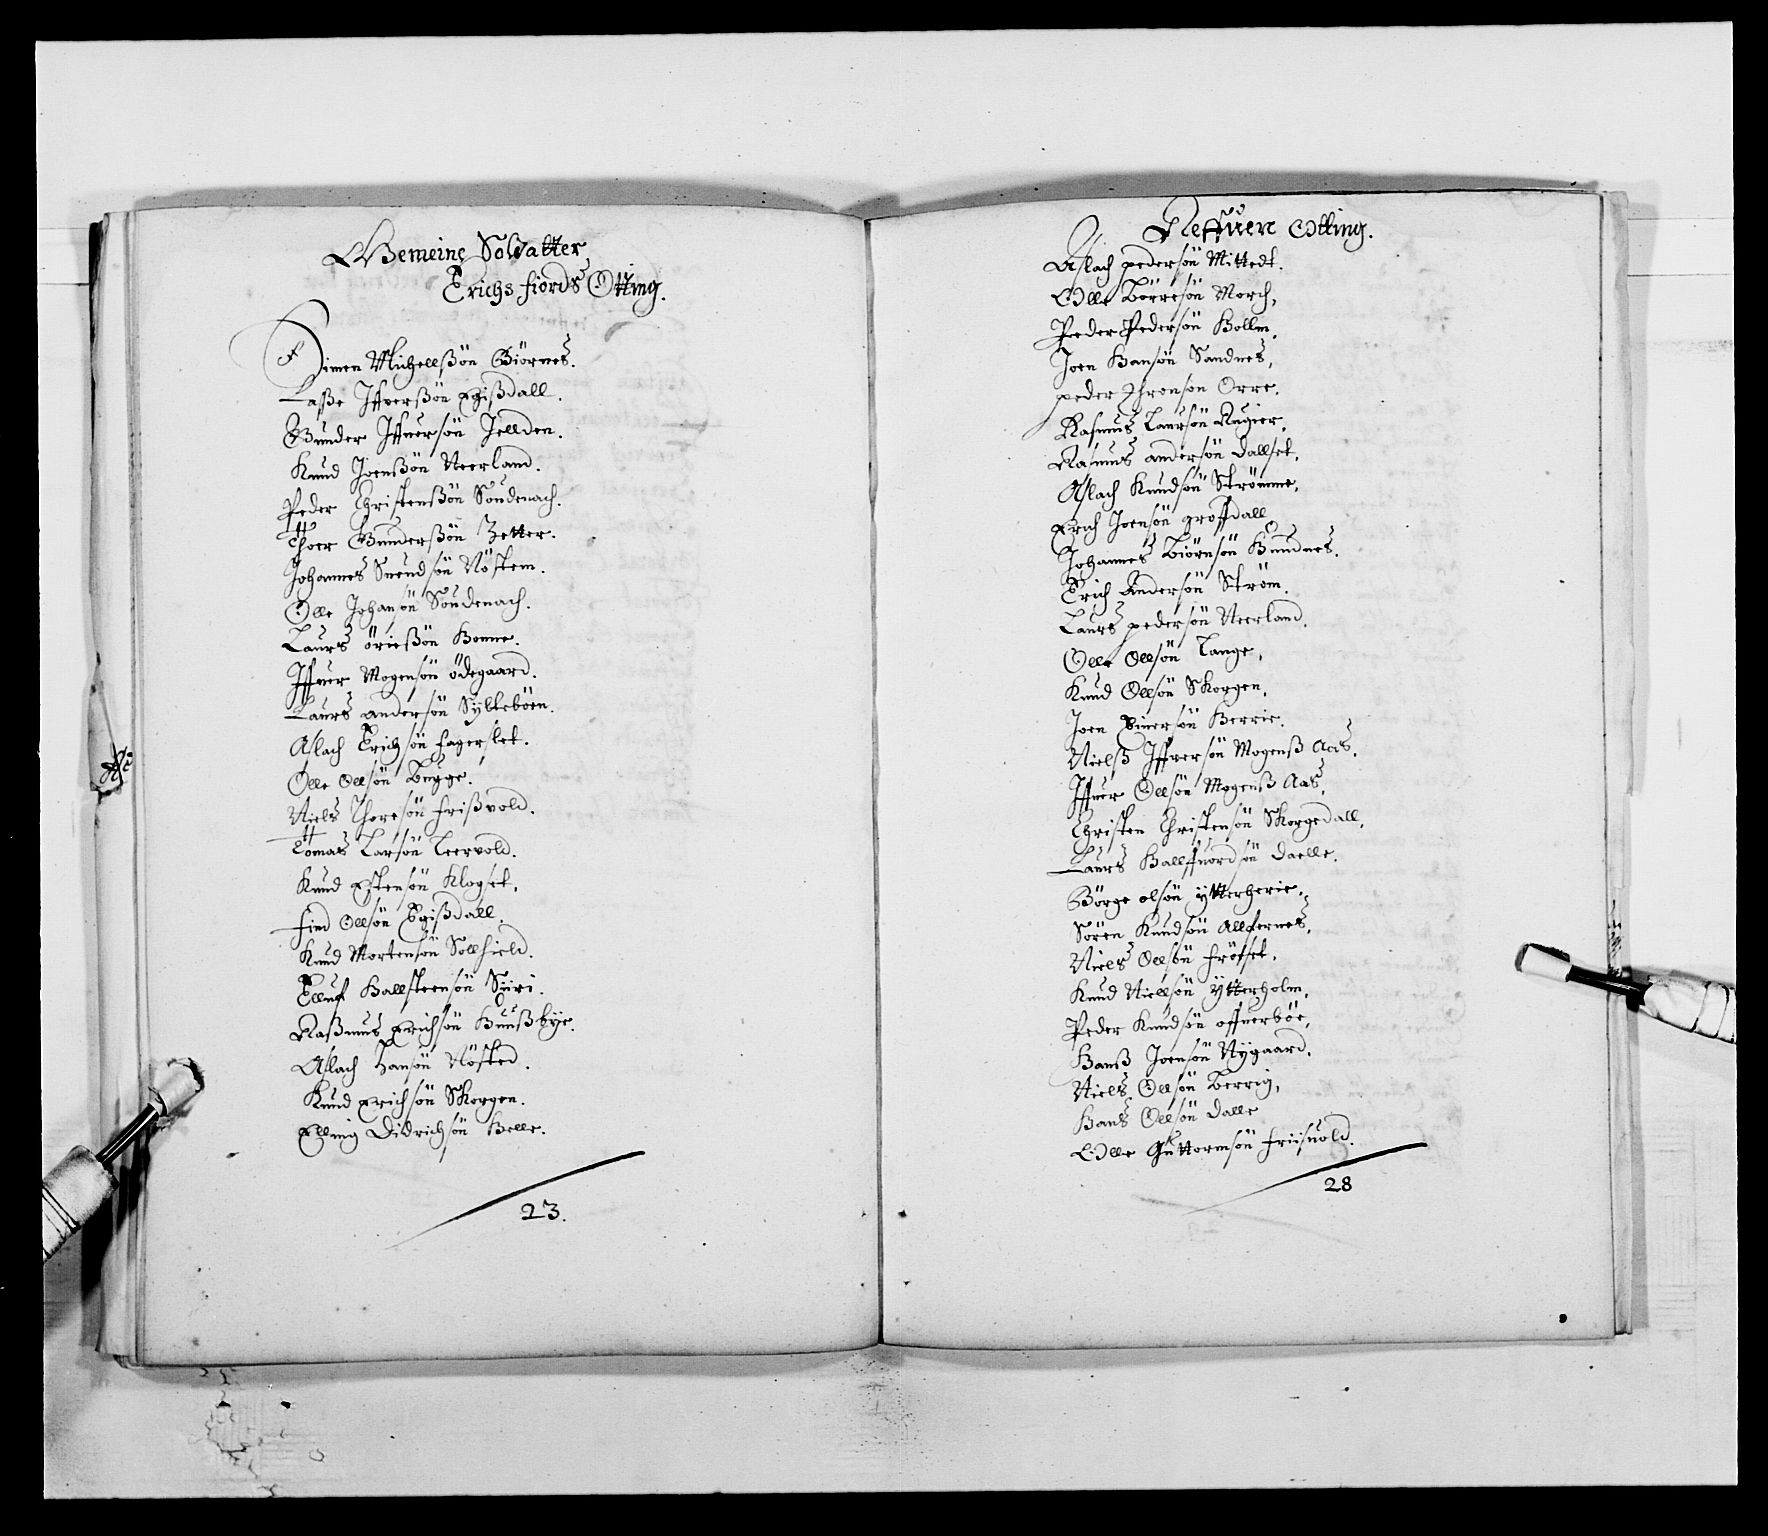 Gemeine Soldatter
Erichsfiords Otting.
Simen Michellßön Biörnes.
Laße Iffverßön Egißdall.
Gunder Iffuersön Jellden.
Knud Joenßön Neerland.
Peder Christenßön Soudenach.
Thoer Gunderßön Zetter.
Johannes Suendsön Nösten.
Olle Johansön Soudenach.
Laurs örießön Bonne.
Iffuer Mogensön ödegaard.
Laurs andersön Sylteböen.
Aslach Erichsön fagerslet.
Olle Ollsön Bugge.
Niels Thoresön frißvold.
Tomas Larsön Leervold.
Knud Estensön Klogset.
find Ollsön Egißdall.
Knud Mortensön Sollfield.
Elluf Hallsteensön Siiri.
Raßmus Erichsön Huußbye.
Aslach Hansön Nösted.
Knud Erichsön Skorgen.
Elling Didrichsön Helle.
23.
Neffuen Otting.
Aslach pedersön Mittedt.
Olle Börresön Morch,
Peder Pedersön Hollm,
Joen Hansön Sandnes,
peder Ihronson Orre.
Rasmus Laursön Rugier,
Rasmus andersön dallset,
Aslach Knudsön Strömme,
Erich Joensön groffdall
Johannes Biörnsön Hundnes.
Erich Andersön Ström.
Laurs pedersön Neerland.
Olle Ollsön Lange,
Knud Ollsön Skorgen,
Joen Einersön Berrie.
Nielß Iffversön Mogenß Aas.
Iffuer Ollsön Mogenß Aas,
Christen Christensön Skorgedall,
Laurs Hallffuordsön Daelle.
Börge olsön ytterherie,
Sören Knudsön Allfernes,
Niels Ollsön frösset,
Knud Niellsön Ytterholm,
Peder Knudsön offuerböe,
Hanß Joensön Nygaard,
Niels Ollsön Berrig,
Hans Ollsön Dalle
Olle Guttormsön friisuold.
28